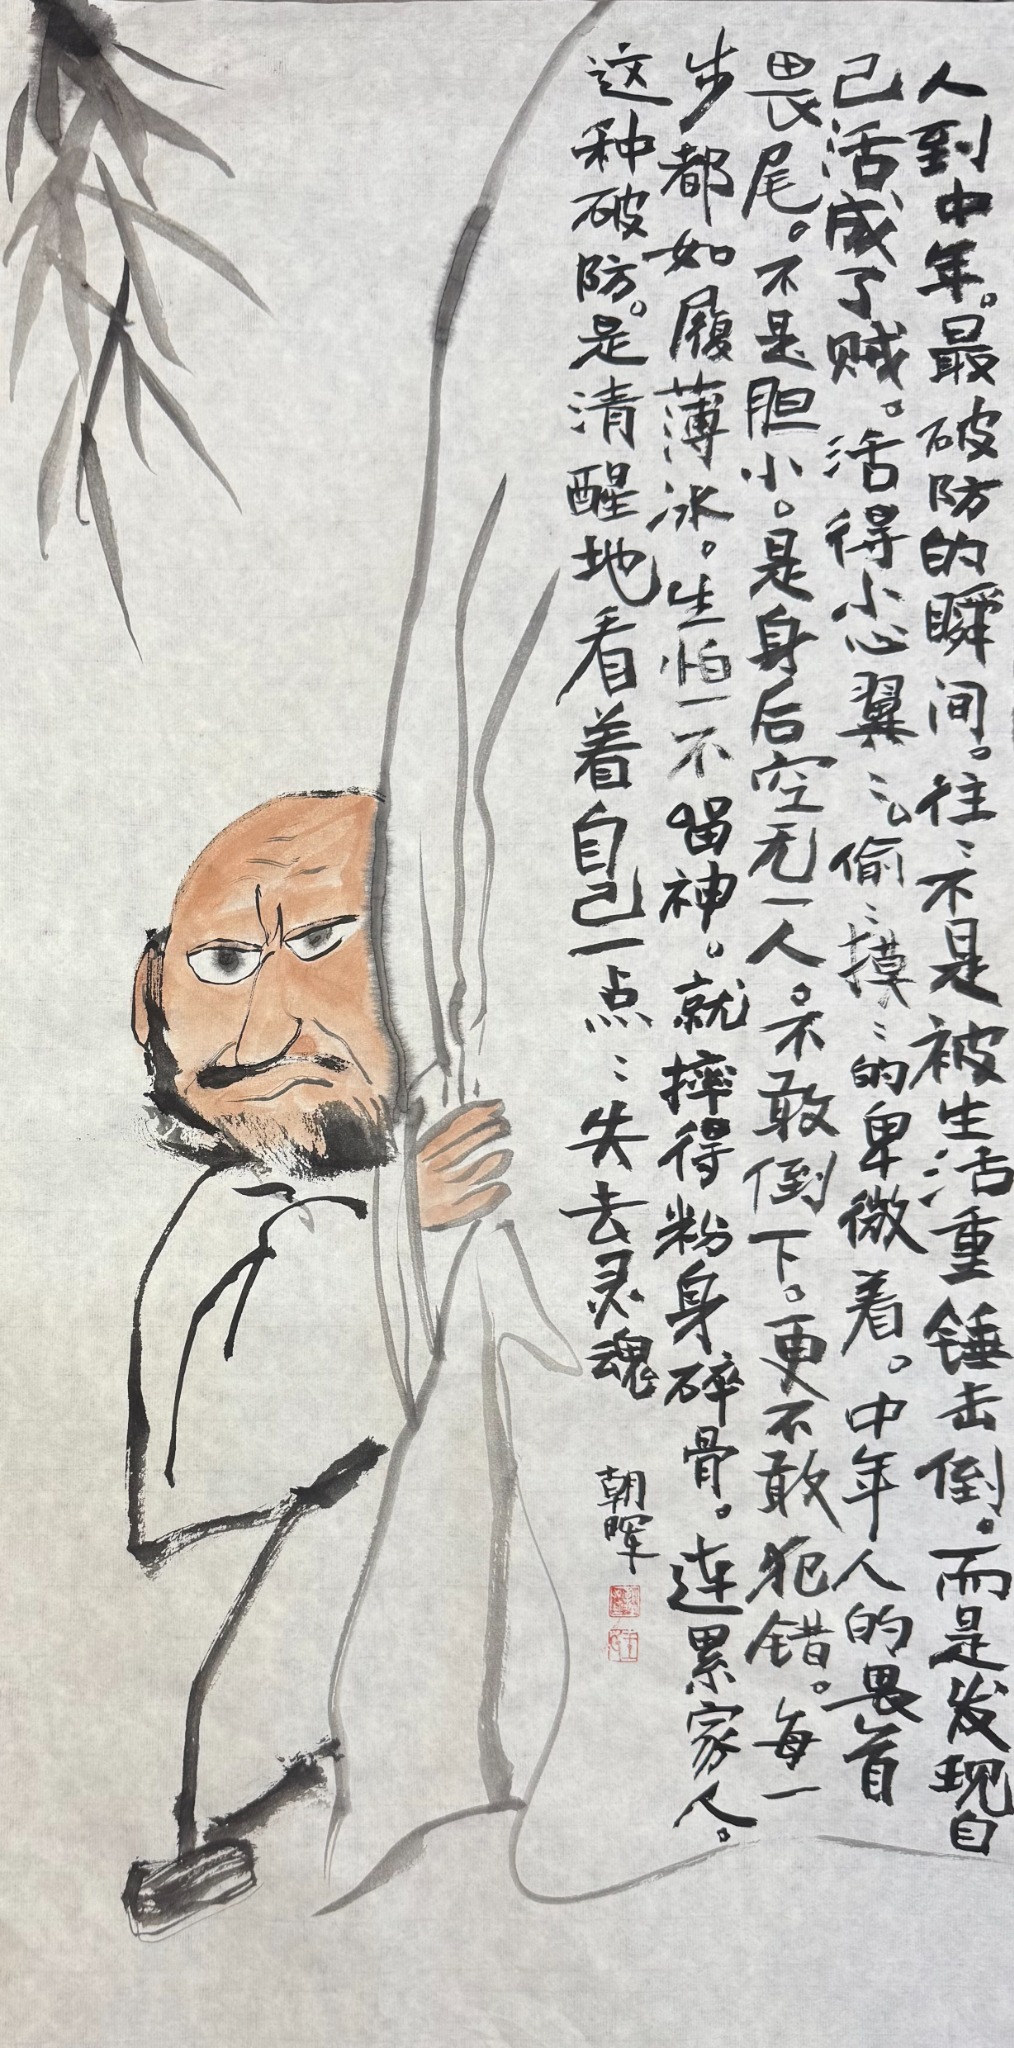 人到中年。最破防的瞬间。往往不是被生活重锤击倒。而是发现自
己活成了贼。活得小心翼翼偷偷摸摸的卑微着。中年人的畏首
畏尾。不是胆小。是身后空无一人。不敢倒下。更不敢犯错。每一
步都如履薄冰。生怕一不留神。就摔得粉身碎骨。连累家人。
这种破防。是清醒地看着自己一点点失去灵魂
朝晖